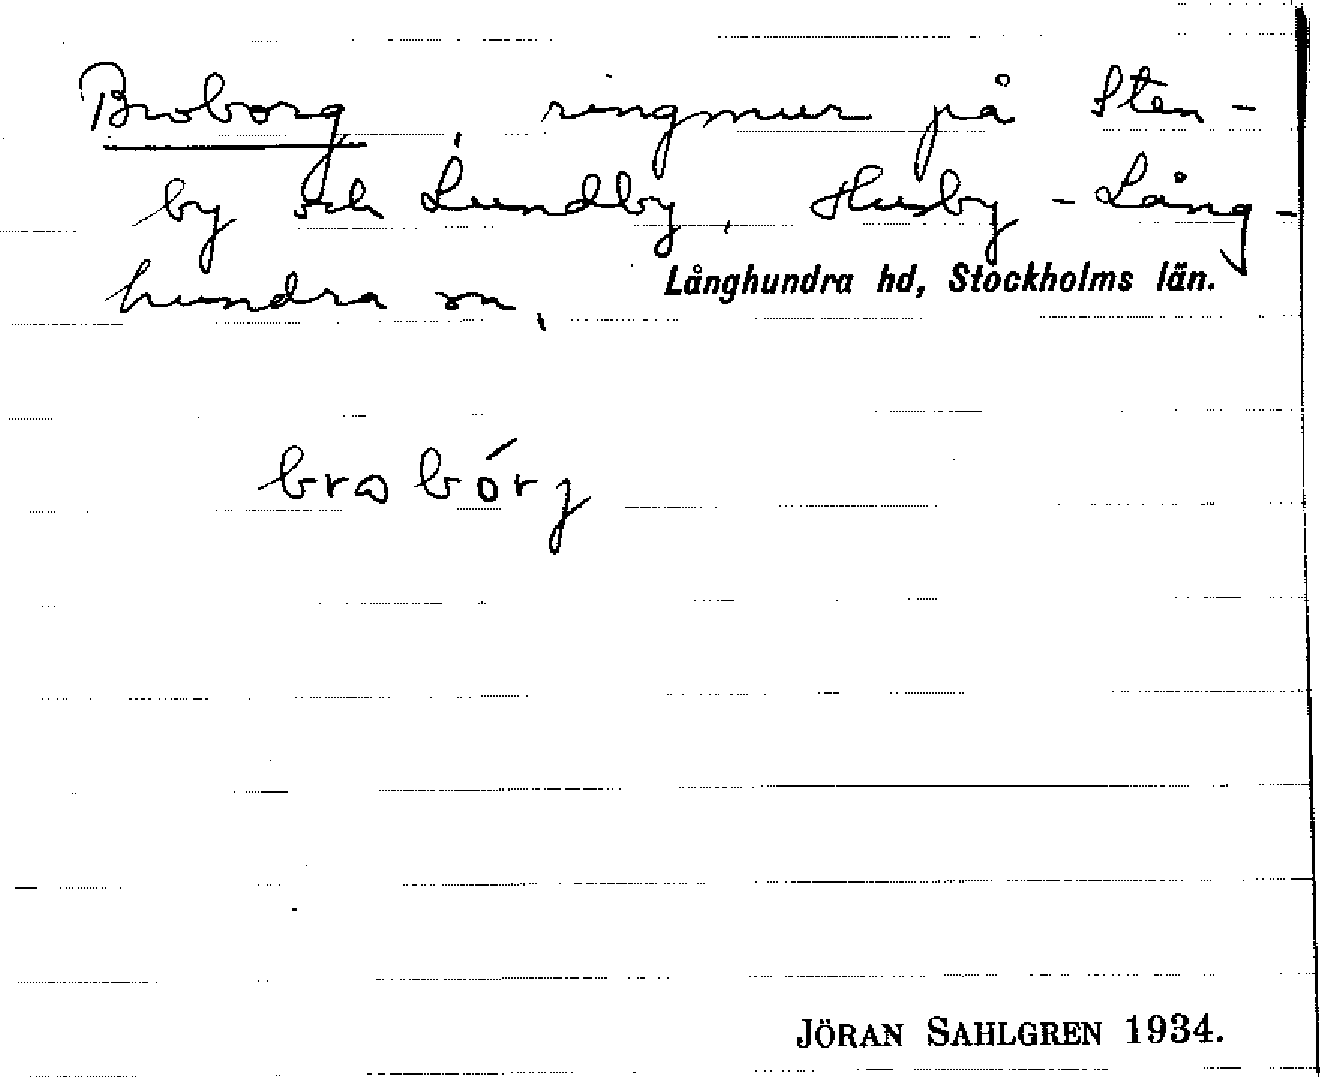 Broborg, ringmur på Sten-
by och Lundby, Husby-Lång-
hundra sn, Långhundra hd, Stockholms län.
brɷbórj
JÖRAN SAHLGREN 1934.